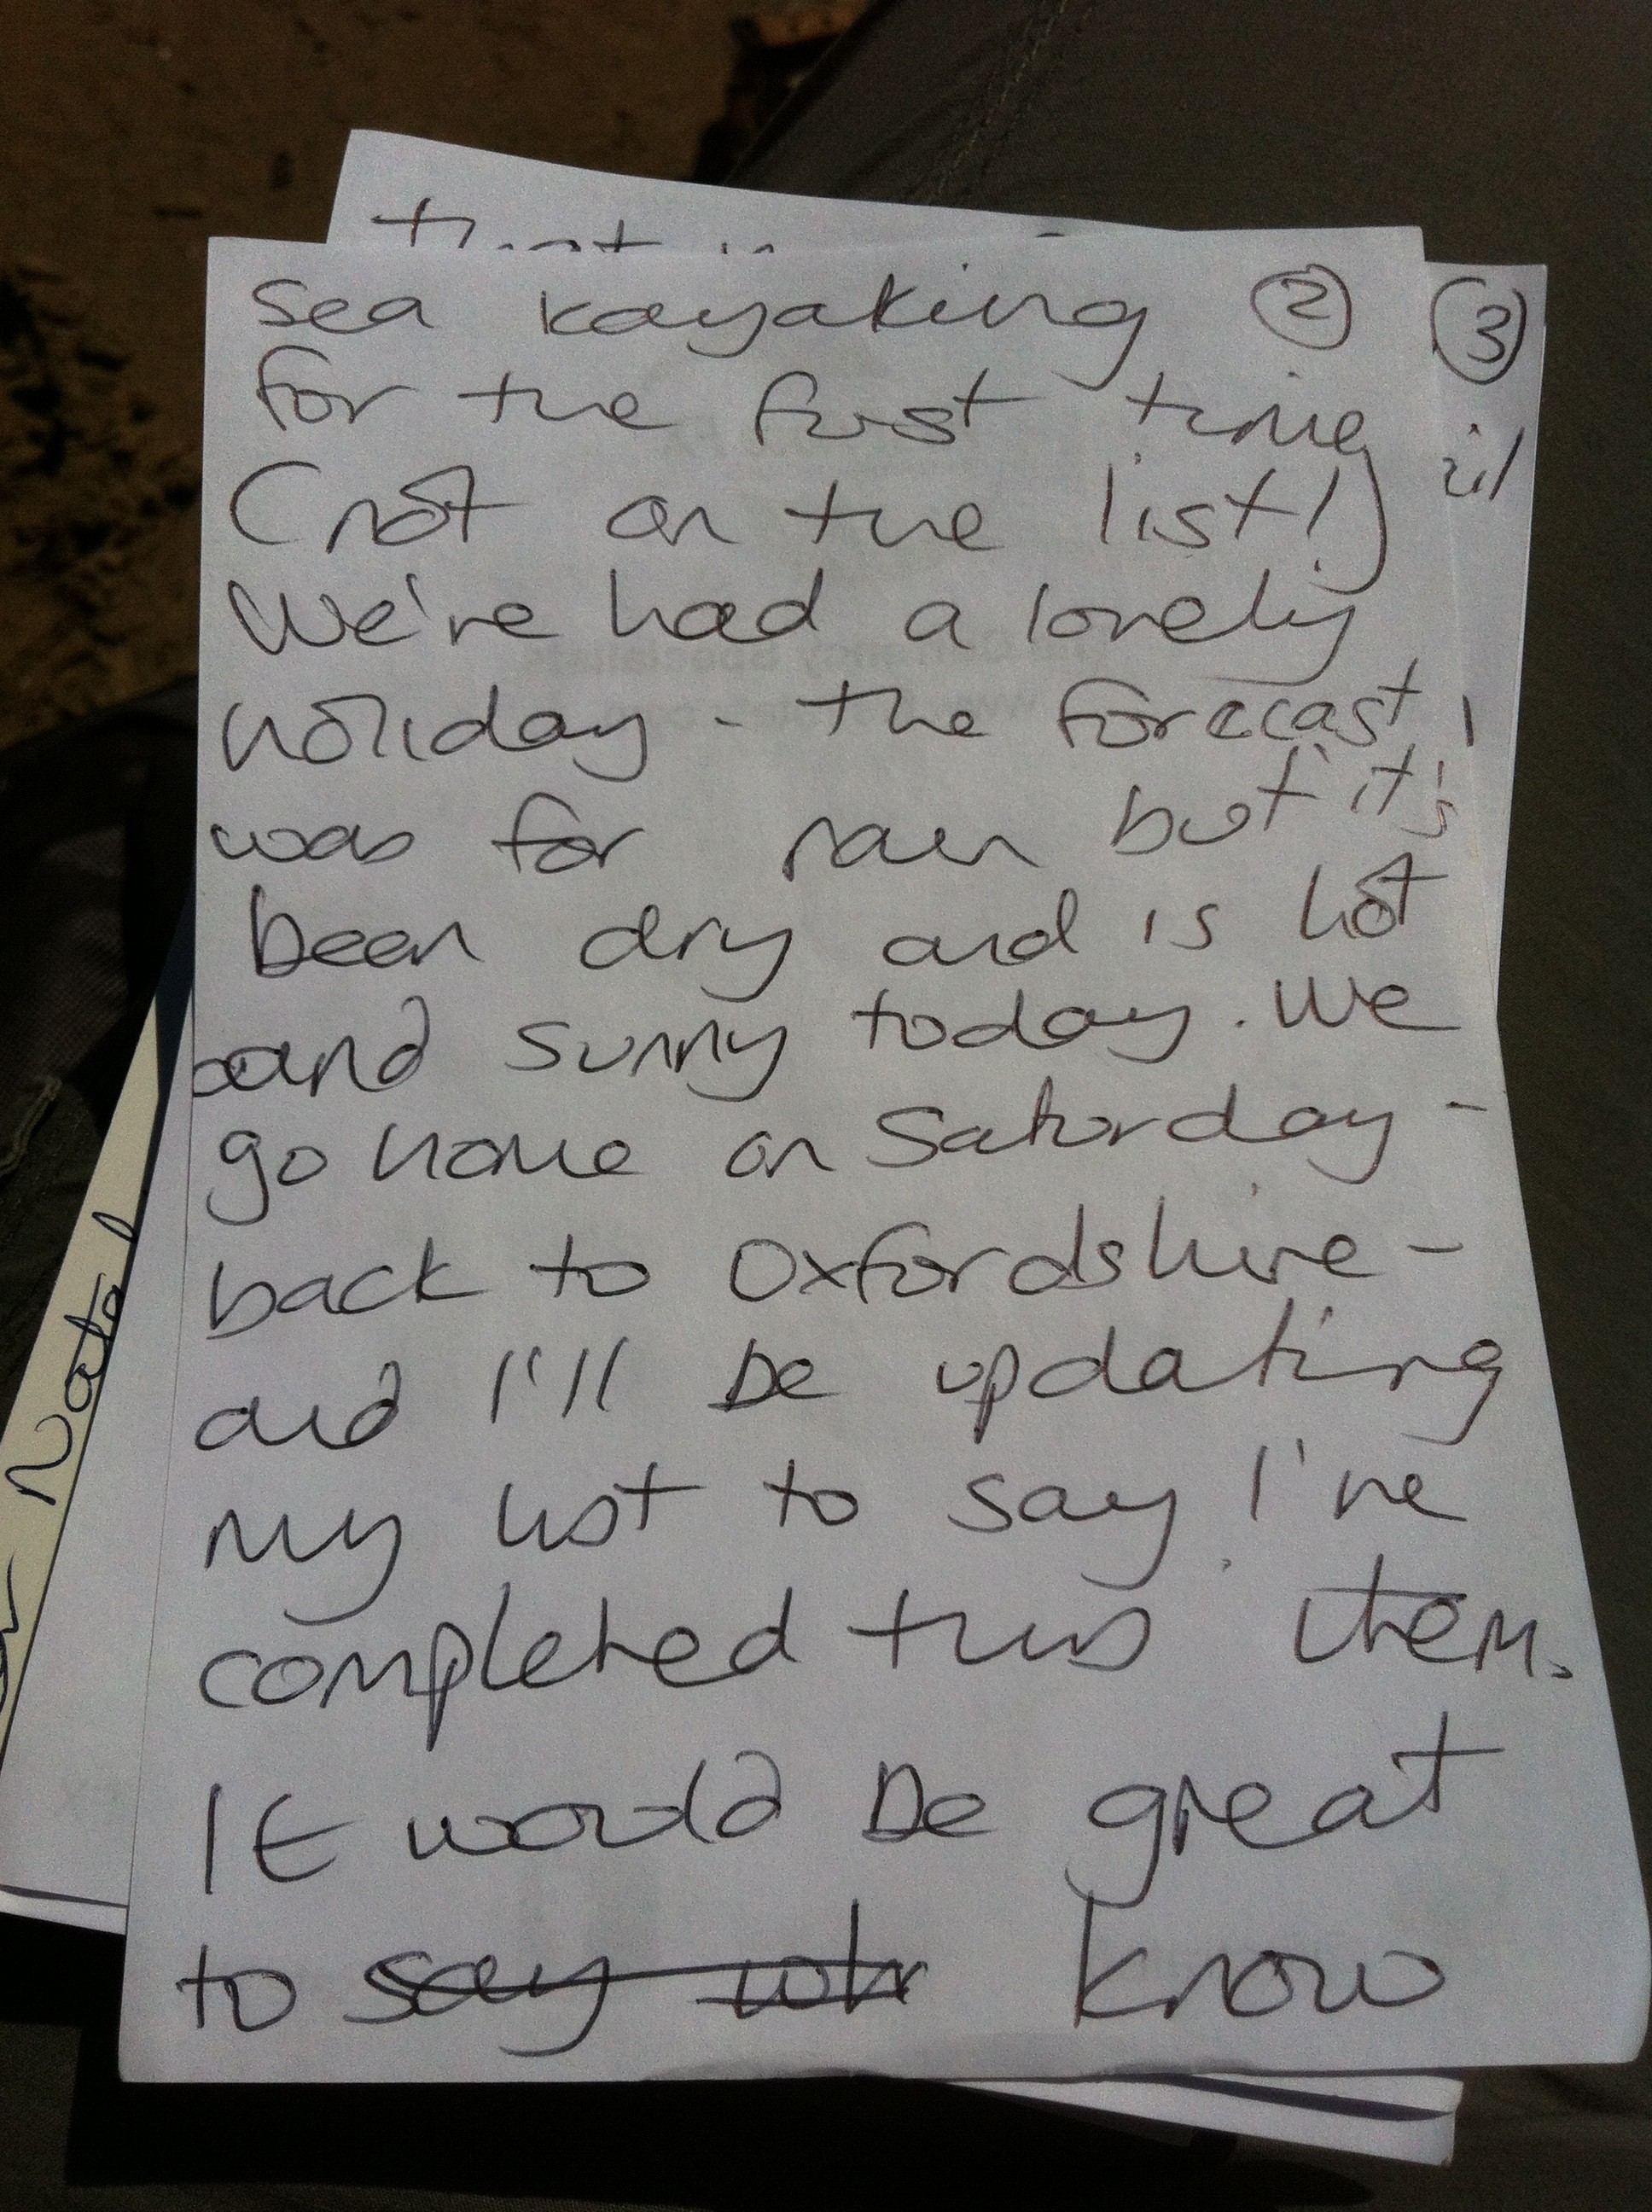 sea kayaking ②
for the first time
(not on the list!)
We've had a lovely
holiday - the forecast
was for rain but it's
been dry and is hot
and sunny today. We
go home on Saturday -
back to Oxfordshire -
and I'll be updating
my list to say I've
completed this item.
It would be great
to say whr know
③